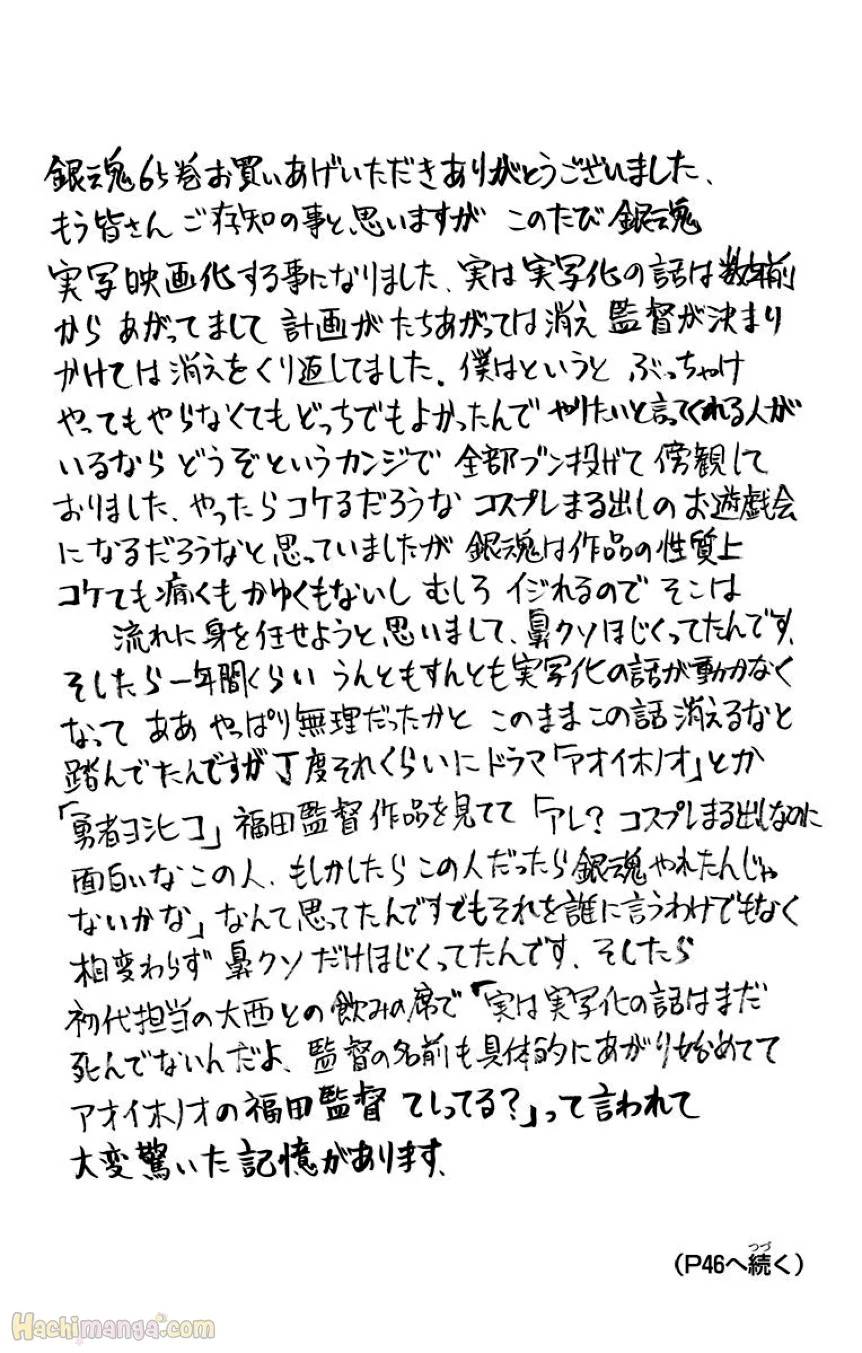 銀魂65巻お買いあげいただきありがとうございました、
もう皆さん ご存知の事と、思いますが このたび 銀魂
実写映画化する事になりました、実は 実写化の話は数年前
から あがってまして 計画が たちあがっては消え 監督が決まり
かけては消えをくり返してました。僕はというと ぶっちゃけ
やってもやらなくてもどっちでもよかったんで やりたいと言ってくれる人が
いるなら どうぞというカンジで 全部ブン投げて 傍観して
おりました、やったら コケるだろうな コスプレまる出しの お遊戯会
になるだろうなと思っていましたが 銀魂は作品の性質上
コケても痛くもかゆくもないし むしろ イジれるので そこは
流れに身を任せようと、思いまして、鼻クソほじくってたんです、
そしたら一年間くらい うんともすんとも実写化の話が動かなく
なって ああ やっぱり無理だったかと このままこの話 消えるなと
踏んでたんですが丁度それくらいにドラマ「アオイホノオ」とか
「勇者ヨシヒコ」福田監督作品を見てて「アレ? コスプレまる出しなのに
面白いな この人、もしかしたら この人だったら銀魂やれたんじゃ
ないかな」なんて思ってたんですでもそれを誰に言うわけでもなく
相変わらず 鼻クソだけほじくってたんです、そしたら
初代担当の大西との飲みの席で「実は実写化の話はまだ
死んでないんだよ、監督の名前も具体的にあがり始めてて
アオイホノオの福田監督 てしってる?」って言われて
大変驚いた記憶があります、
(P46へ続く)
つづ
Hachimanga.com